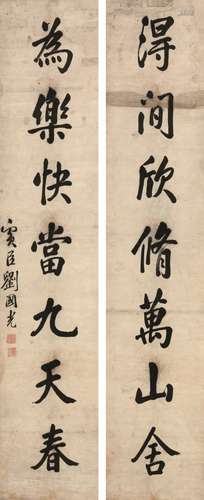 得閒欣脩萬山舍
為樂快當九天春
賓臣劉國光